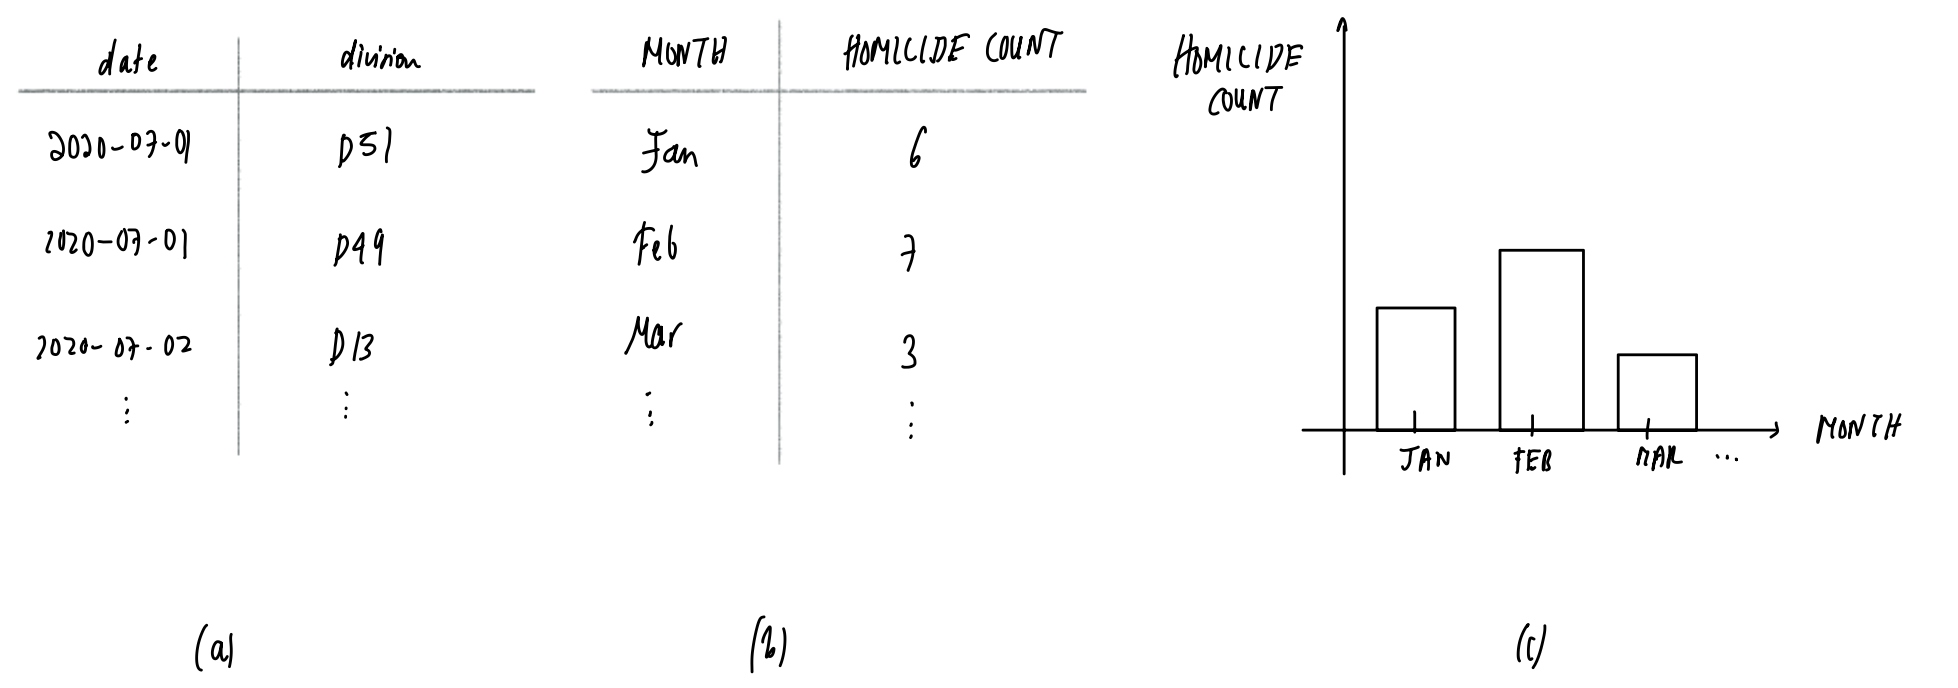 date division
2020-07-01 D51
2020-07-01 D49
2020-07-02 D13
⋮ ⋮
(a)
MONTH HOMICIDE COUNT
Jan 6
Feb 7
Mar 3
⋮ ⋮
(b)
HOMICIDE
COUNT
JAN FEB MAR ...
MONTH
(c)